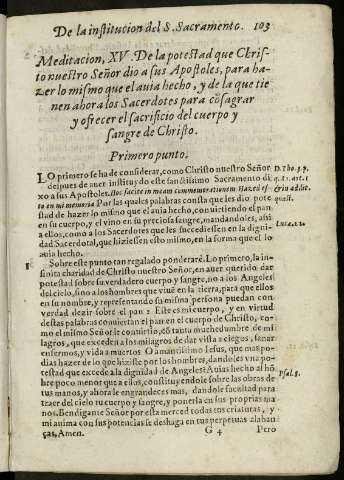 De la institucion del S. Sacramento. 103
Meditacion, XV. De la potestad que Chris-
to nuestro Señor dio a sus Apostoles, para ha-
zer lo mismo que el auia hecho, y de la que tie
nen ahora los Sacerdotes para cõsagrar
y ofrecer el sacrificio del cuerpo y
sangre de Christo.
Primero punto.
LO primero se ha de considerar, como Christo nuestro Señor
despues de auer instituydo este santissimo Sacramento di
xo a sus Apostoles. Hoc facite in meam commemorationem. Hazed es-
to en mi memoria Por las quales palabras consta que les dio pote
stad de hazer lo mismo que el auia hecho, conuirtiendo el pan
en su cuerpo, y el vino en su preciosa sangre, mandandoles, assi
a ellos, como a los Sacerdotes que les succediessen en la digni-
dad Sacerdotal, que hiziessen esto mismo, en la forma que el lo
auia hecho.
Sobre este punto tan regalado ponderarè. Lo primero, la in-
finita charidad de Christo nuestro Señor, en auer querido dar
potestad sobre su verdadero cuerpo y sangre, no a los Angeles
del cielo, sino a los hombres que viuẽ en la tierra, para que ellos
en su nombre, y representando su misma persona puedan con
verdad dezir sobre el pan: Este es mi cuerpo, y en virtud
destas palabras conuiertan el pan en el cuerpo de Christo, co-
mo el mismo Señor le conuirtio, cõ tanta muchedumbre de mi
lagros, que exceden a los milagros de dar vista a ciegos, sanar
enfermos, y vida a muertos O amantissimo Iesus, que mas po-
diades hazer de lo que hizistes por los hombres, dandoles vna po
testad que excede a la dignidad de Angeles? Auias hecho al hõ
bre poco menor que a ellos, constituyendole sobre las obras de
tus manos, y ahora le engrandeces mas, dandole facultad para
traer del cielo tu cuerpo y sangre, y ponerla en sus proprias ma
nos. Bendigante Señor por esta merced todas tus criaturas, y
mi anima con sus potencias se deshaga en tus perpetuas alaban
ças, Amen. G 4 Pero
D. Tho. 3. p.
Lucæ. 22.
1
Psal. 8.